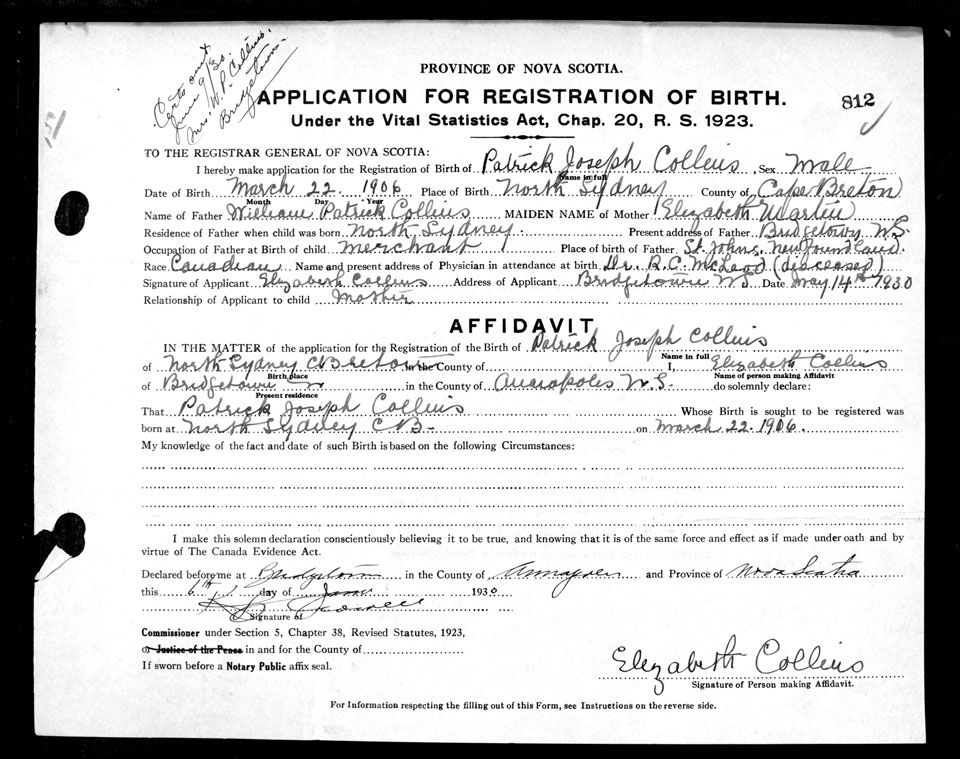 Certs out
June 9/30.
Mrs. W. P. Collins.
Bridgetown.
PROVINCE OF NOVA SCOTIA.
APPLICATION FOR REGISTRATION OF BIRTH.
812
Under the Vital Statistics Act, Chap. 20, R. S. 1923.
TO THE REGISTRAR GENERAL OF NOVA SCOTIA:
I hereby make application for the Registration of Birth of Patrick Joseph Collins, Sex Male
Name in full
Date of Birth March 22. 1906 Place of Birth North Sydney County of Cape Breton
Month Day Year
Name of Father William Patrick Collins MAIDEN NAME of Mother Elizabeth Martin
Residence of Father when child was born North Sydney. Present address of Father Bridgetown N.S.
Occupation of Father at Birth of child Merchant Place of birth of Father St. Johns, Newfoundland.
Race Canadian Name and present address of Physician in attendance at birth Dr. R. C. McLeod (diseased)
Signature of Applicant Elizabeth Collins Address of Applicant Bridgetown N.S. Date May 14th 1930
Relationship of Applicant to child Mother
AFFIDAVIT
IN THE MATTER of the application for the Registration of the Birth of Patrick Joseph Collins
Name in full
of North Sydney C Breton in the County of I, Elizabeth Collins
Birth place Name of person making Affidavit
of Bridgetown in the County of Annapolis N.S. do solemnly declare:
Present residence
That Patrick Joseph Collins Whose Birth is sought to be registered was
born at North Sydney C B. on March 22. 1906.
My knowledge of the fact and date of such Birth is based on the following Circumstances:
I make this solemn declaration conscientiously believing it to be true, and knowing that it is of the same force and effect as if made under oath and by
virtue of The Canada Evidence Act.
Declared before me at Bridgetown in the County of Annapolis and Province of Nova Scotia
this 6th day of June 1930
Signature of
Commissioner under Section 5, Chapter 38, Revised Statutes, 1923,
or Justice of the Peace in and for the County of
If sworn before a Notary Public affix seal.
Elizabeth Collins
Signature of Person making Affidavit.
For Information respecting the filling out of this Form, see Instructions on the reverse side.